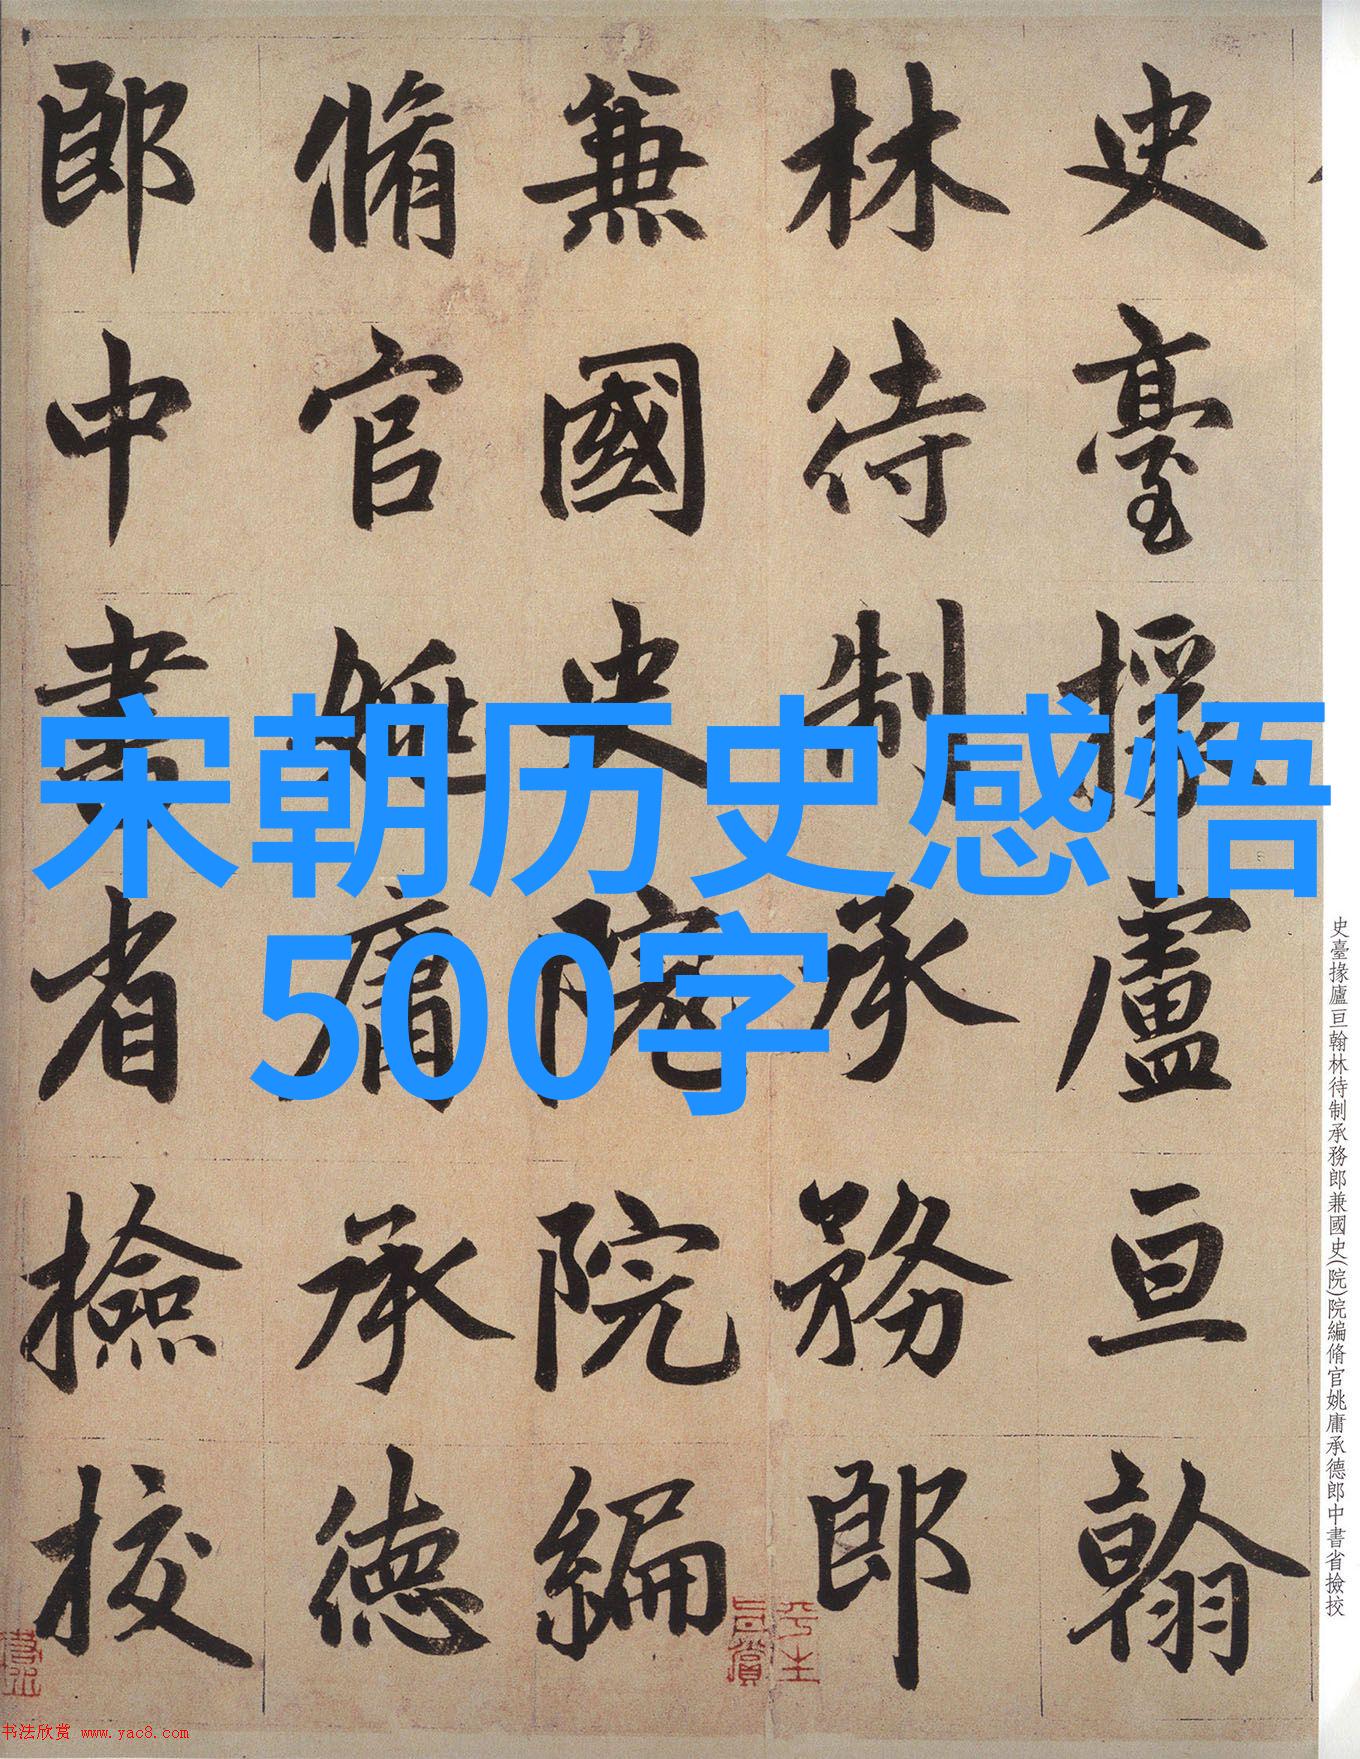 史臺掾廬亘翰林待制承務郎兼國史(院)院編脩官姚庸承德郎中書省撿挍
史臺掾盧亘翰
林待制承務郎
兼國史院院編
脩官姚庸承德
郎中書省撿挍
宋朝历史感悟
500字
平生
书法欣赏 www.yac8.com